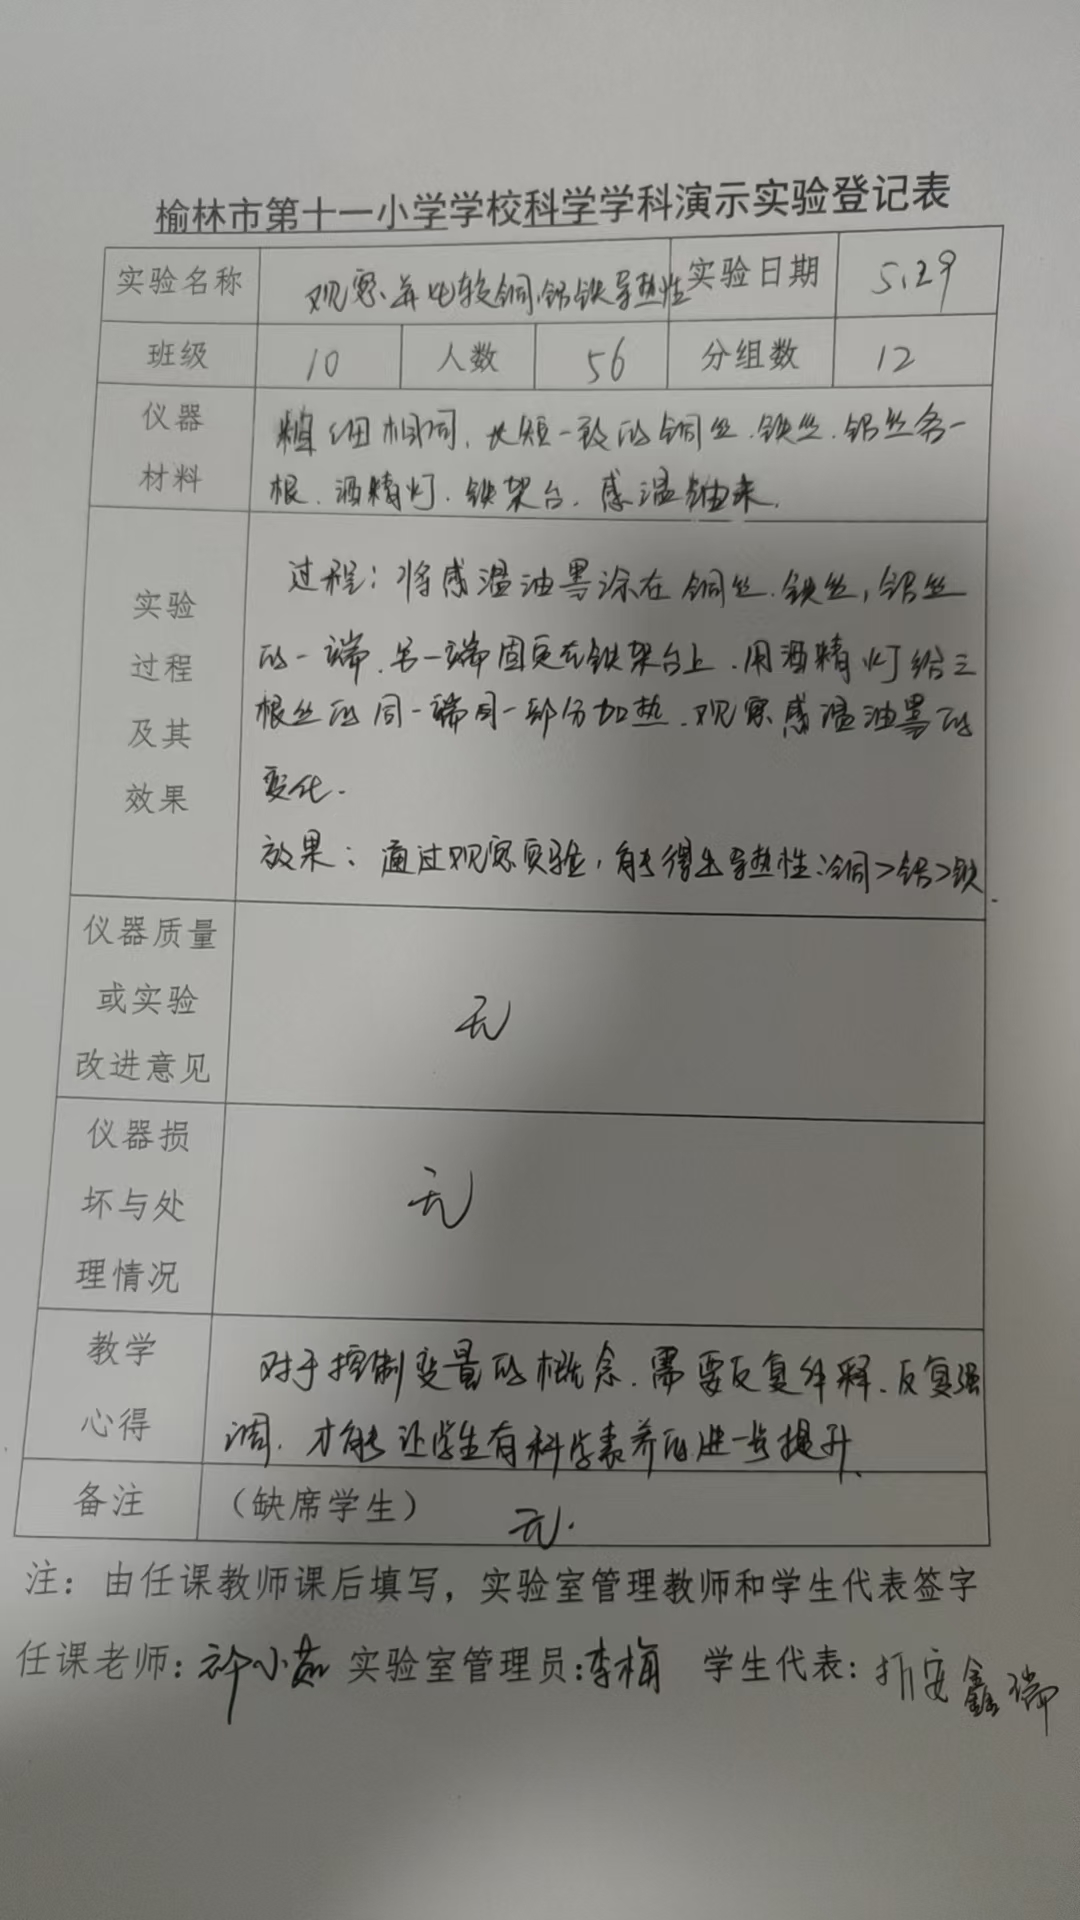 榆林市第十一小学学校科学学科演示实验登记表
实验名称 观察并比较铜、铝、铁导热性 实验日期 5.29
班级 10 人数 56 分组数 12
仪器
材料
粗细相同、长短一致的铜丝、铁丝、铝丝各一
根、酒精灯、铁架台、感温油
实验
过程
及其
效果
过程：将感温油墨涂在铜丝、铁丝，铝丝
的一端、另一端固定在铁架台上、用酒精灯给三
根丝的同一端同一部份加热、观察感温油墨的
变化.
效果：通过观察实验，能得出导热性：铜>铝>铁.
仪器质量
或实验
改进意见
无
仪器损
坏与处
理情况
无
教学
心得
对于控制变量的概念、需要反复解释、反复强
调、才能让学生有科学素养的进一步提升.
备注 （缺席学生） 无.
注：由任课教师课后填写，实验室管理教师和学生代表签字
任课老师：许小茹 实验室管理员：李梅 学生代表：折安鑫瑞